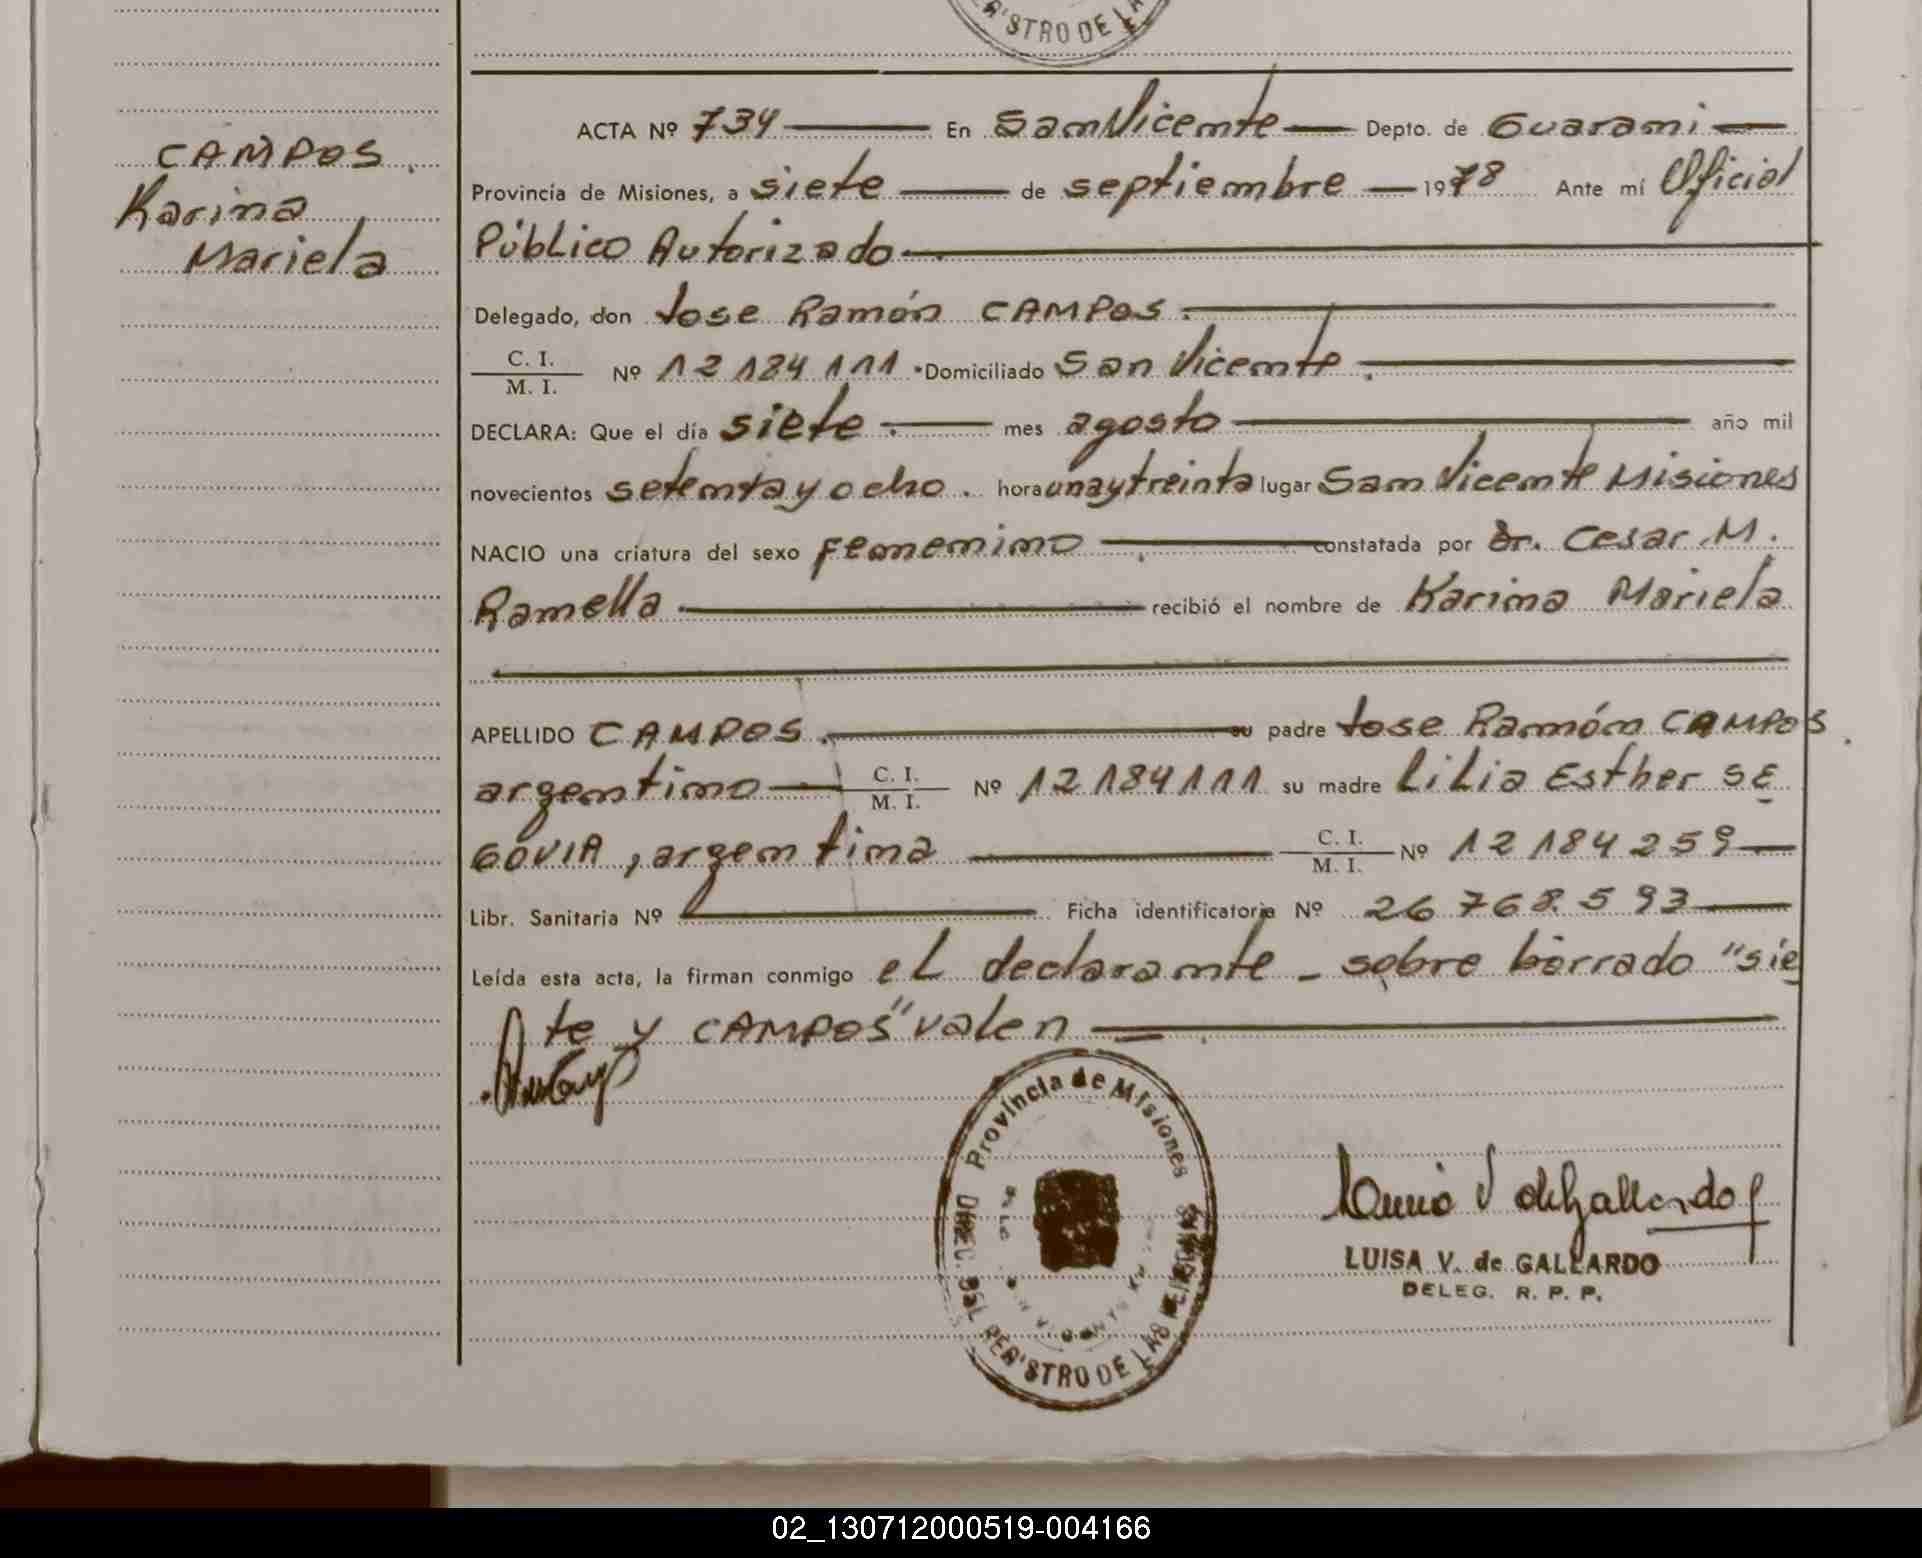 REG'STRO DE LA
CAMPOS.
Karina
Mariela
ACTA Nº 734 En San Vicente Depto. de Guarani
Provincia de Misiones, a siete de septiembre 1978 Ante mí Oficial
Público Autorizado
Delegado, don Jose Ramón CAMPOS.
C. I.
M. I. Nº 12184111. Domiciliado San Vicente.
DECLARA: Que el día siete. mes agosto año mil
novecientos setenta y ocho. hora una y treinta lugar San Vicente Misiones
NACIO una criatura del sexo femenino. constatada por Dr. Cesar M.
Ramella recibió el nombre de Karina Mariela
APELLIDO CAMPOS. su padre Jose Ramón CAMPOS.
argentino C. I.
M. I. Nº 12184111 su madre Lilia Esther SE
GOVIA, argentina C. I.
M. I. Nº 12184259
Libr. Sanitaria Nº Ficha identificatoria Nº 26768.593
Leída esta acta, la firman conmigo el declarante - sobre borrado "sie
te y CAMPOS" valen
Provincia de Misiones
DIREC. DEL REG'STRO DE LAS PERSONAS
V de Gallardo
LUISA V. de GALLARDO
DELEG. R. P. P.
02_130712000519-004166